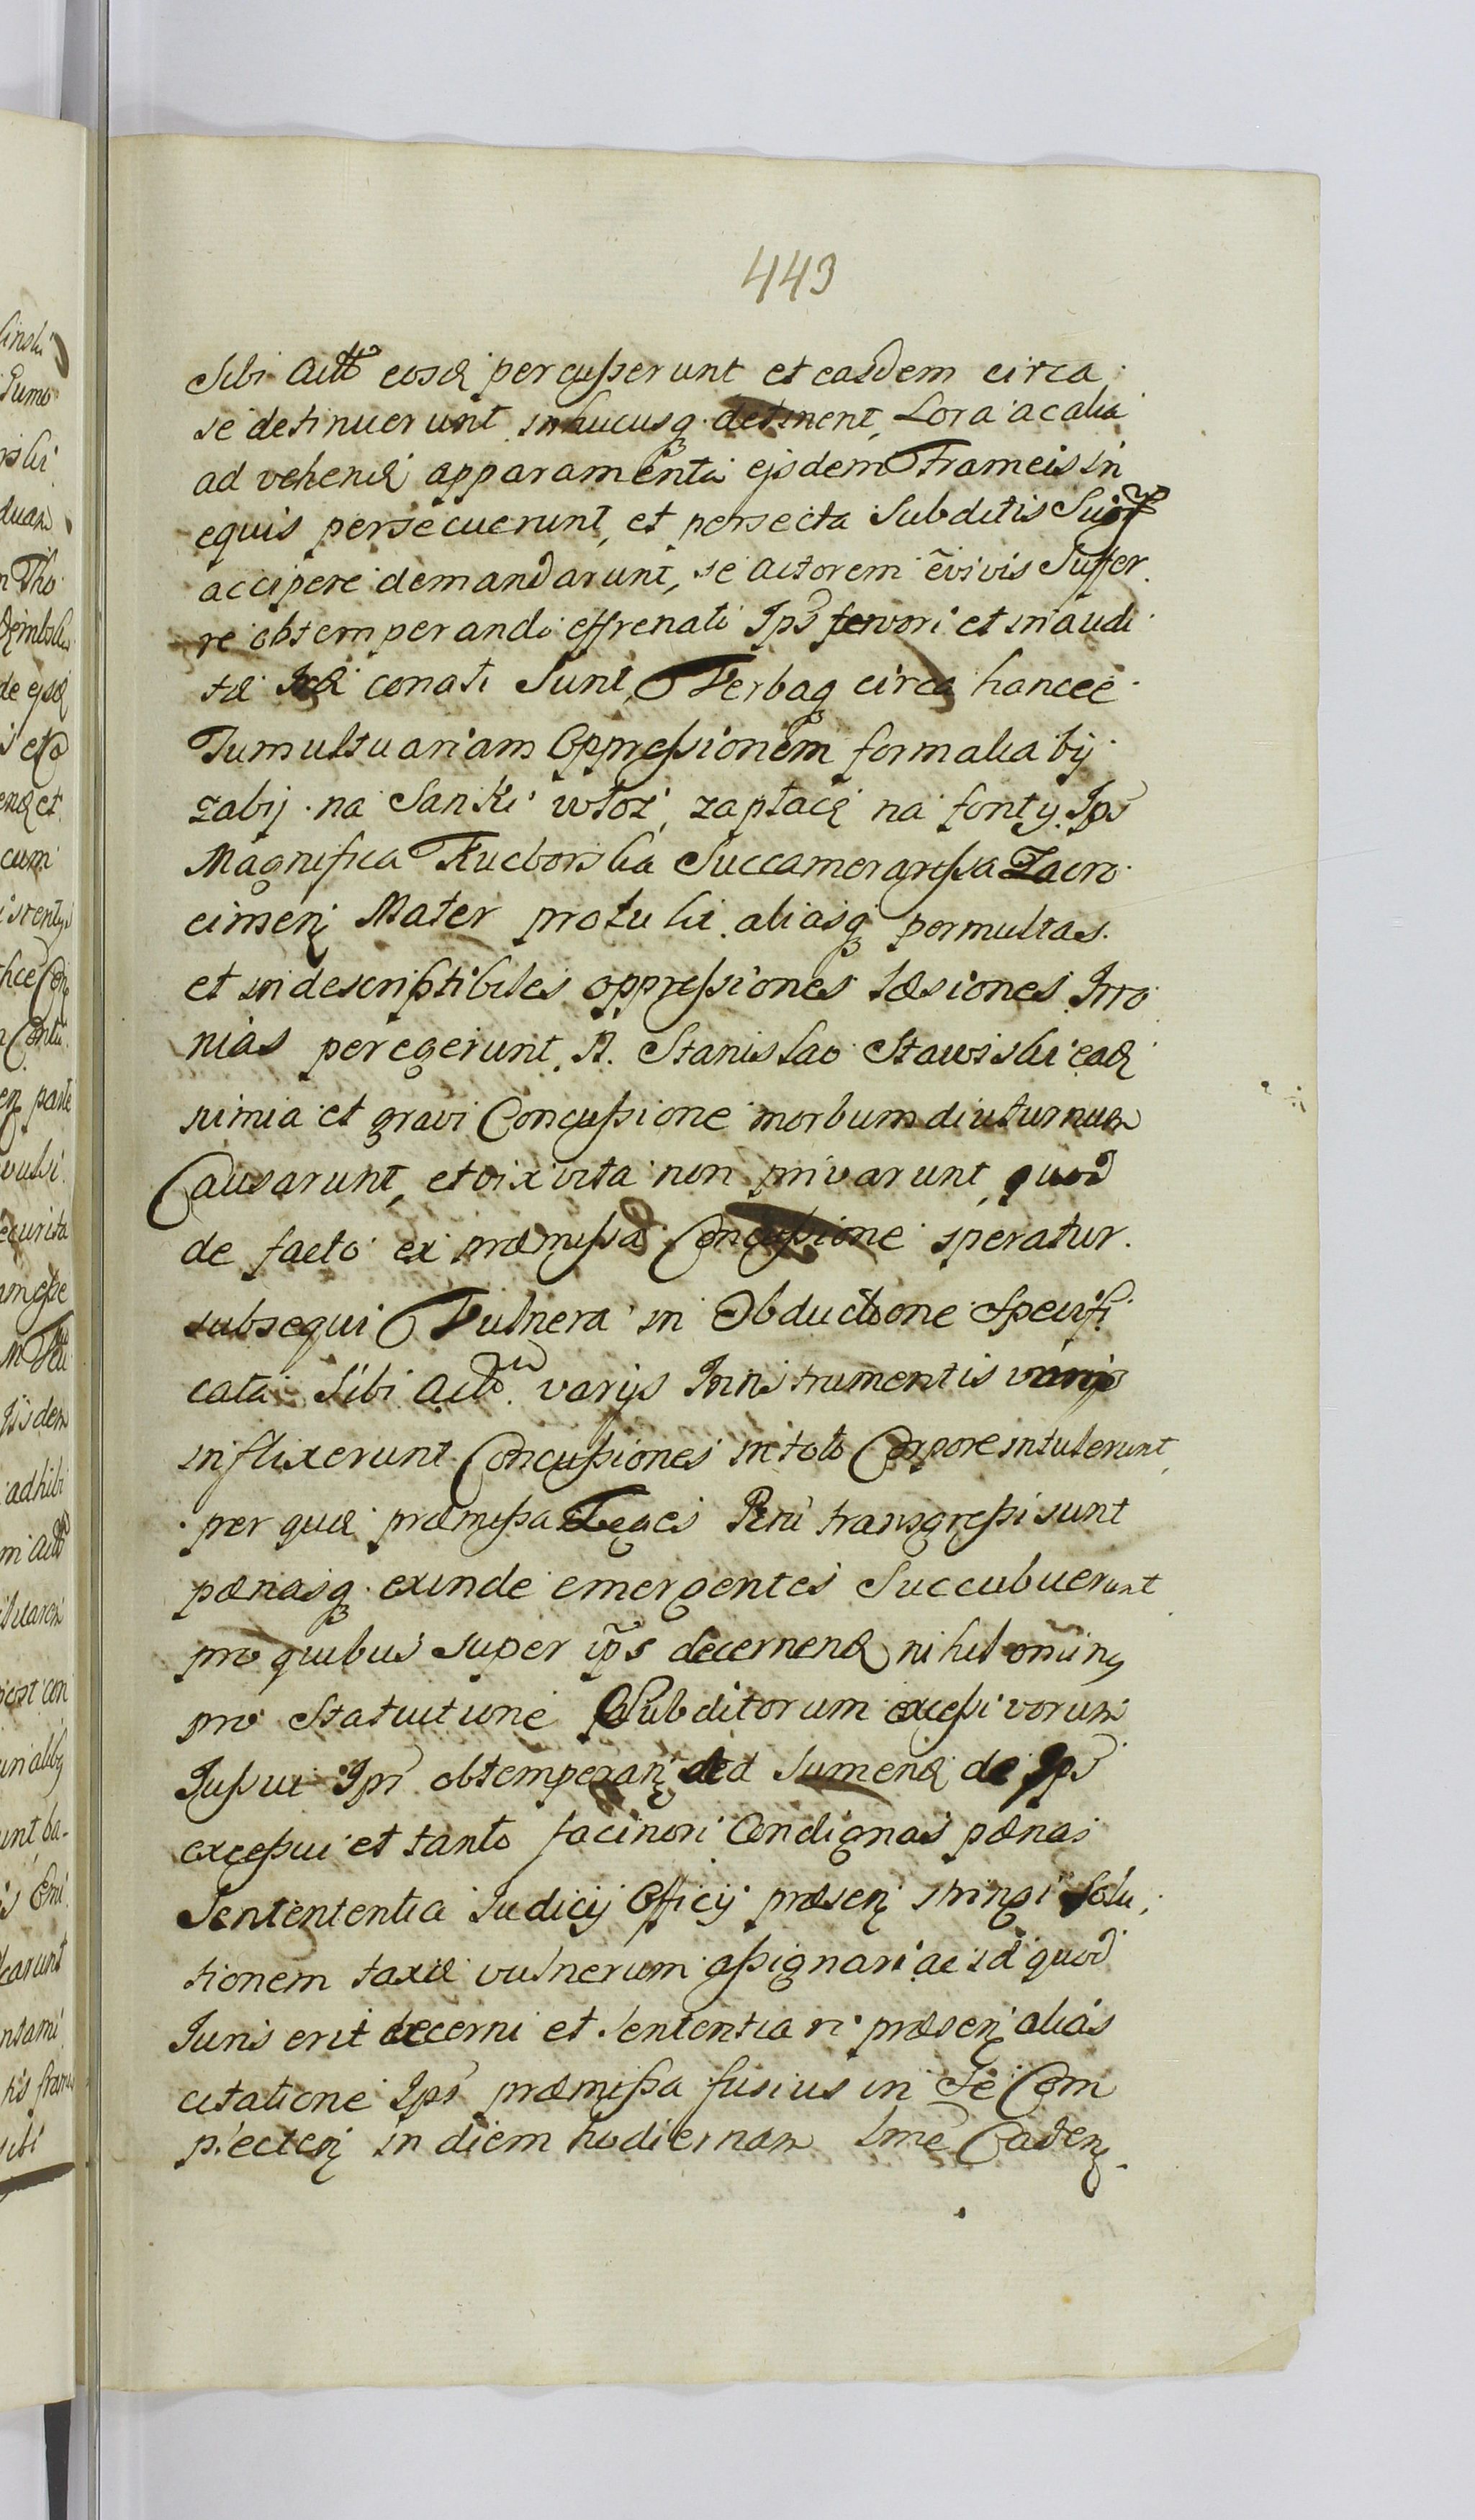 443
Sibi Actt eosq percusserunt et eosdem circa
se detinuerunt inhucusq detinent, Lora ac alia
ad vehend apparamenta ejsdem Frameis in
equis persecuerunt, et persecta Subditis Suor
accipere demandarunt, se Actorem e vivis Suffer
re obtemperandi effrenati Ips fervori et inaudi
tæ conati Sunt, Verbaq circa hancce
Tumultuariam Oppressionem formalia bij
zabij na Sanki włoż, zapłacę na fonty. Ips
Magnifica Kuczborska Succameraressa Zacro
cimen Mater protulit. aliasq permultas
et indescriptibiles oppressiones læsiones Irro
nias peregerunt, N. Stanislao Stawiski ead
nimia et gravi Concussione morbum diuturnum
Causarunt, et vix vita non privarunt, quod
de facto ex præmissa Concussione speratur
subsequi Vulnera in Obductione Specifi
cata Sibi Act. varijs Innstrumentis varijs
inflixerunt Concussiones in toto Corpore intulerunt,
per quæ præmissa Leges Rni transgressi sunt
pænasq exinde emergentes Succubuerunt
pro quibus super ips decernend nihil omning
pro Statuitione Subditorum excessivorum
Jussui Ips obtemperan sed Sumend de Ips
excessui et tanto facinori Condignas pænas
Sentententia Judicij Officij præsen stringi Solu,
tionem taxæ vulnerum assignari ac id quod
Juris erit decerni et Sententiari præsen alias
citatione Ips præmissa fusius in Se Com
plecten in diem hodiernam lme Caden.